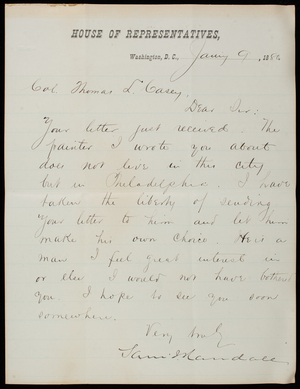 HOUSE OF REPRESENTATIVES,
Washington, D. C., Jany 9, 188
Col. Thomas L Casey,
Dear Sir:
Your letter just received. The
painter I wrote you about
does not live in this city
but in Philadelphia. I have
taken the liberty of sending
your letter to them and let him
make his own choice He is a
man I feel great interest in
or else I would not have bothered
you. I hope to see you soon
somewhere.
Very truly
Sam J Randall